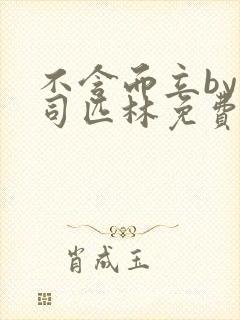 不念而立by
司匹林免费
肖成玉